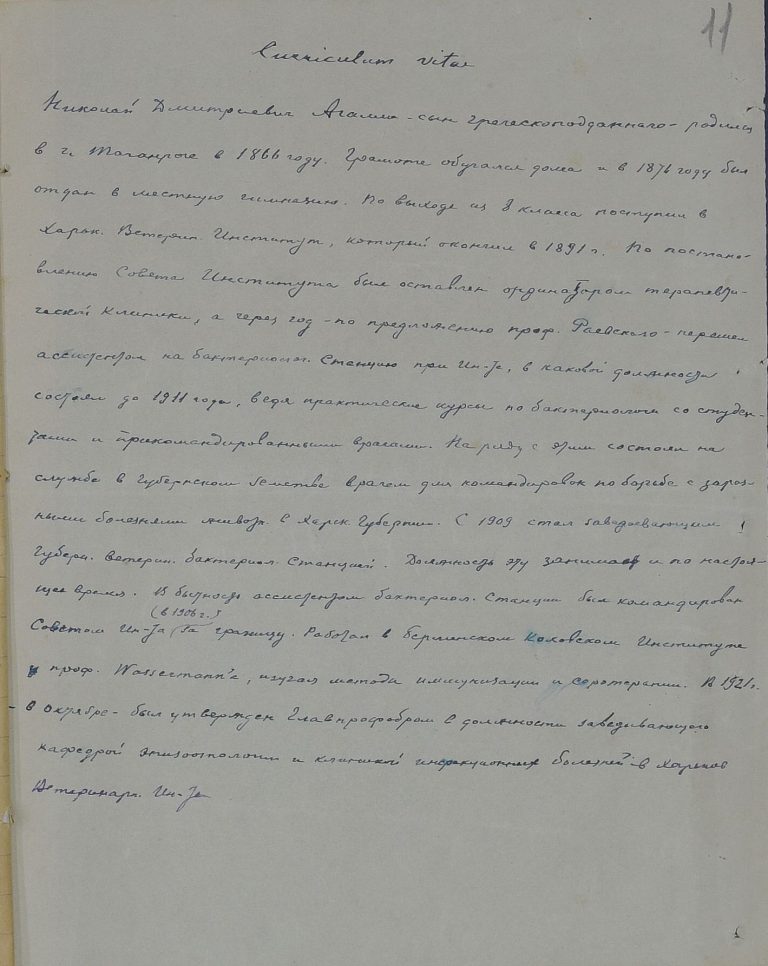 11
Curriculum vitae
Николай Дмитриевич Агалли - сын греческоподданнаго - родился
в г. Таганроге в 1866 году. Грамоте обучался дома и в 1876 году был
отдан в местную гимназию. По выходе из 8 класса поступил в
Харьк. Ветерин. Институт, который окончил в 1891 г. По постано-
влению Совета Института был оставлен ординатором терапевти-
ческой клиники, а через год - по предложению проф. Раевского - перешел
ассистентом на бактериолог. Станцию при Ин-те, в каковой должности
состоял до 1911 года, ведя практические курсы по бактериологии со студен-
тами и прикомандированными врачами. На ряду с этим состоял на
службе в Губернском Земстве врачем для командировок по борьбе с зараз-
ными болезнями животн. в Харьк. Губернии. С 1909 стал заведовающим
Губерн. Ветерин. бактериол. Станцией. Должность эту занимает и по настоя-
щее время. В бытность ассистентом бактериол. Станции был командирован
(в 1906 г.)
Советом Ин-та за границу. Работал в Берлинском Коховском Институте
у проф. Wassermann'а, изучая методы иммунизации и серотерапии. В 1921 г.
в октябре - был утвержден Главпрофобром в должности заведывающего
кафедрой эпизоотологии и клиникой инфекционных болезней в Харьков
Ветеринарн. Ин-те